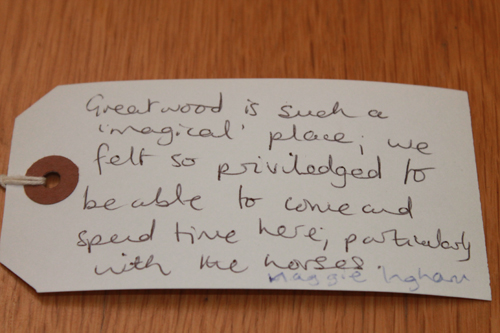 Greatwood is such a
'magical' place; we
felt so priviledged to
be able to come and
spend time here; particularly
with the horses.
Maggie Ingham